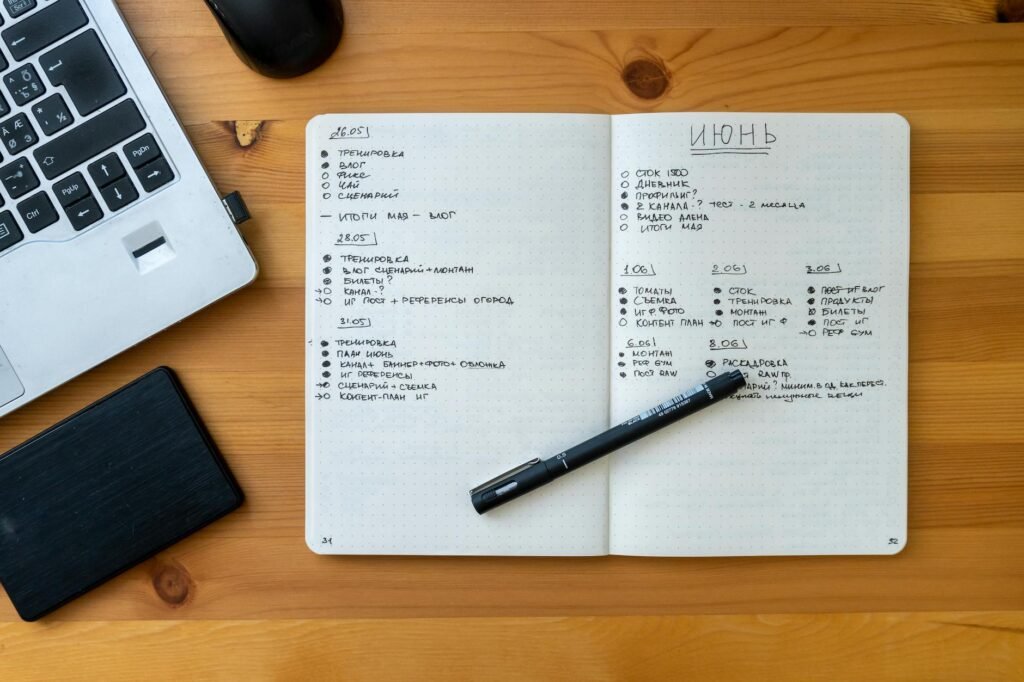 26.05
ТРЕНИРОВКА
ВЛОГ
ФИКС
ЧАЙ
СЦЕНАРИЙ
— ИТОГИ МАЯ — ВЛОГ
28.05
ТРЕНИРОВКА
ВЛОГ СЦЕНАРИЙ+МОНТАЖ
БИЛЕТЫ?
КАНАЛ-?
ИГ ПОСТ + РЕФЕРЕНСЫ ОГОРОД
31.05
ТРЕНИРОВКА
ПЛАН ИЮНЬ
КАНАЛ+ БАННЕР+ФОТО+ ОБЛОЖКА
ИГ РЕФЕРЕНСЫ
СЦЕНАРИЙ + СЪЕМКА
КОНТЕНТ-ПЛАН ИГ
31
ИЮНЬ
СТОК 1500
ДНЕВНИК
ПРОФИЛЬ ИГ?
2 КАНАЛА-? ТЕСТ - 2 МЕСЯЦА
ВИДЕО АЛЕНА
ИТОГИ МАЯ
1.06
ТОМАТЫ
СЪЕМКА
ИГ Ф. ФОТО
КОНТЕНТ ПЛАН
2.06
СТОК
ТРЕНИРОВКА
МОНТАЖ
ПОСТ ИГ Ф
3.06
ПОСТ ИГ ВЛОГ
ПРОДУКТЫ
БИЛЕТЫ
ПОСТ ИГ
РЕФ БУМ
6.06
МОНТАЖ
РЕФ БУМ
ПОСТ RAW
8.06
РАСКАДРОВКА
RAW ПР.
МИНИМ. В ОД. КАК ПЕРЕСТ.
ненужные вещи
32
PgUp
PgDn
Ctrl
0.5